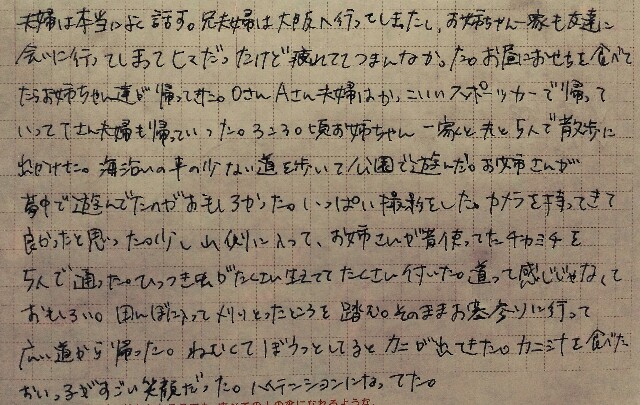 夫婦は本当によく話す。兄夫婦は大阪へ行ってしまたし、お姉ちゃん一家も友達に
会いに行ってしまってヒマだったけど疲れててつまんなかった。お昼におせちを食べて
たらお姉ちゃん達が帰ってきた。OさんAさん夫婦はかっこいいスポーツカーで帰って
いってTさん夫婦も帰っていった。3:30頃お姉ちゃん一家と夫と5人で散歩に
出かけた。海沿いの車の少ない道を歩いて公園で遊んだ。お姉さんが
夢中で遊んでたのがおもしろかった。いっぱい撮影をした。カメラを持ってきて
良かったと思った。少し山側に入って、お姉さんが昔使ってたチカミチを
5人で通った。ひっつき虫がたくさん生えててたくさん付いた。道って感じじゃなくて
おもしろい。田んぼに入って刈りとったところを踏む。そのままお墓参りに行って
広い道から帰った。ねむくてぼうっとしてるとカニが出てきた。カニミソを食べた
おいっ子がすごい笑顔だった。ハイテンションになってた。